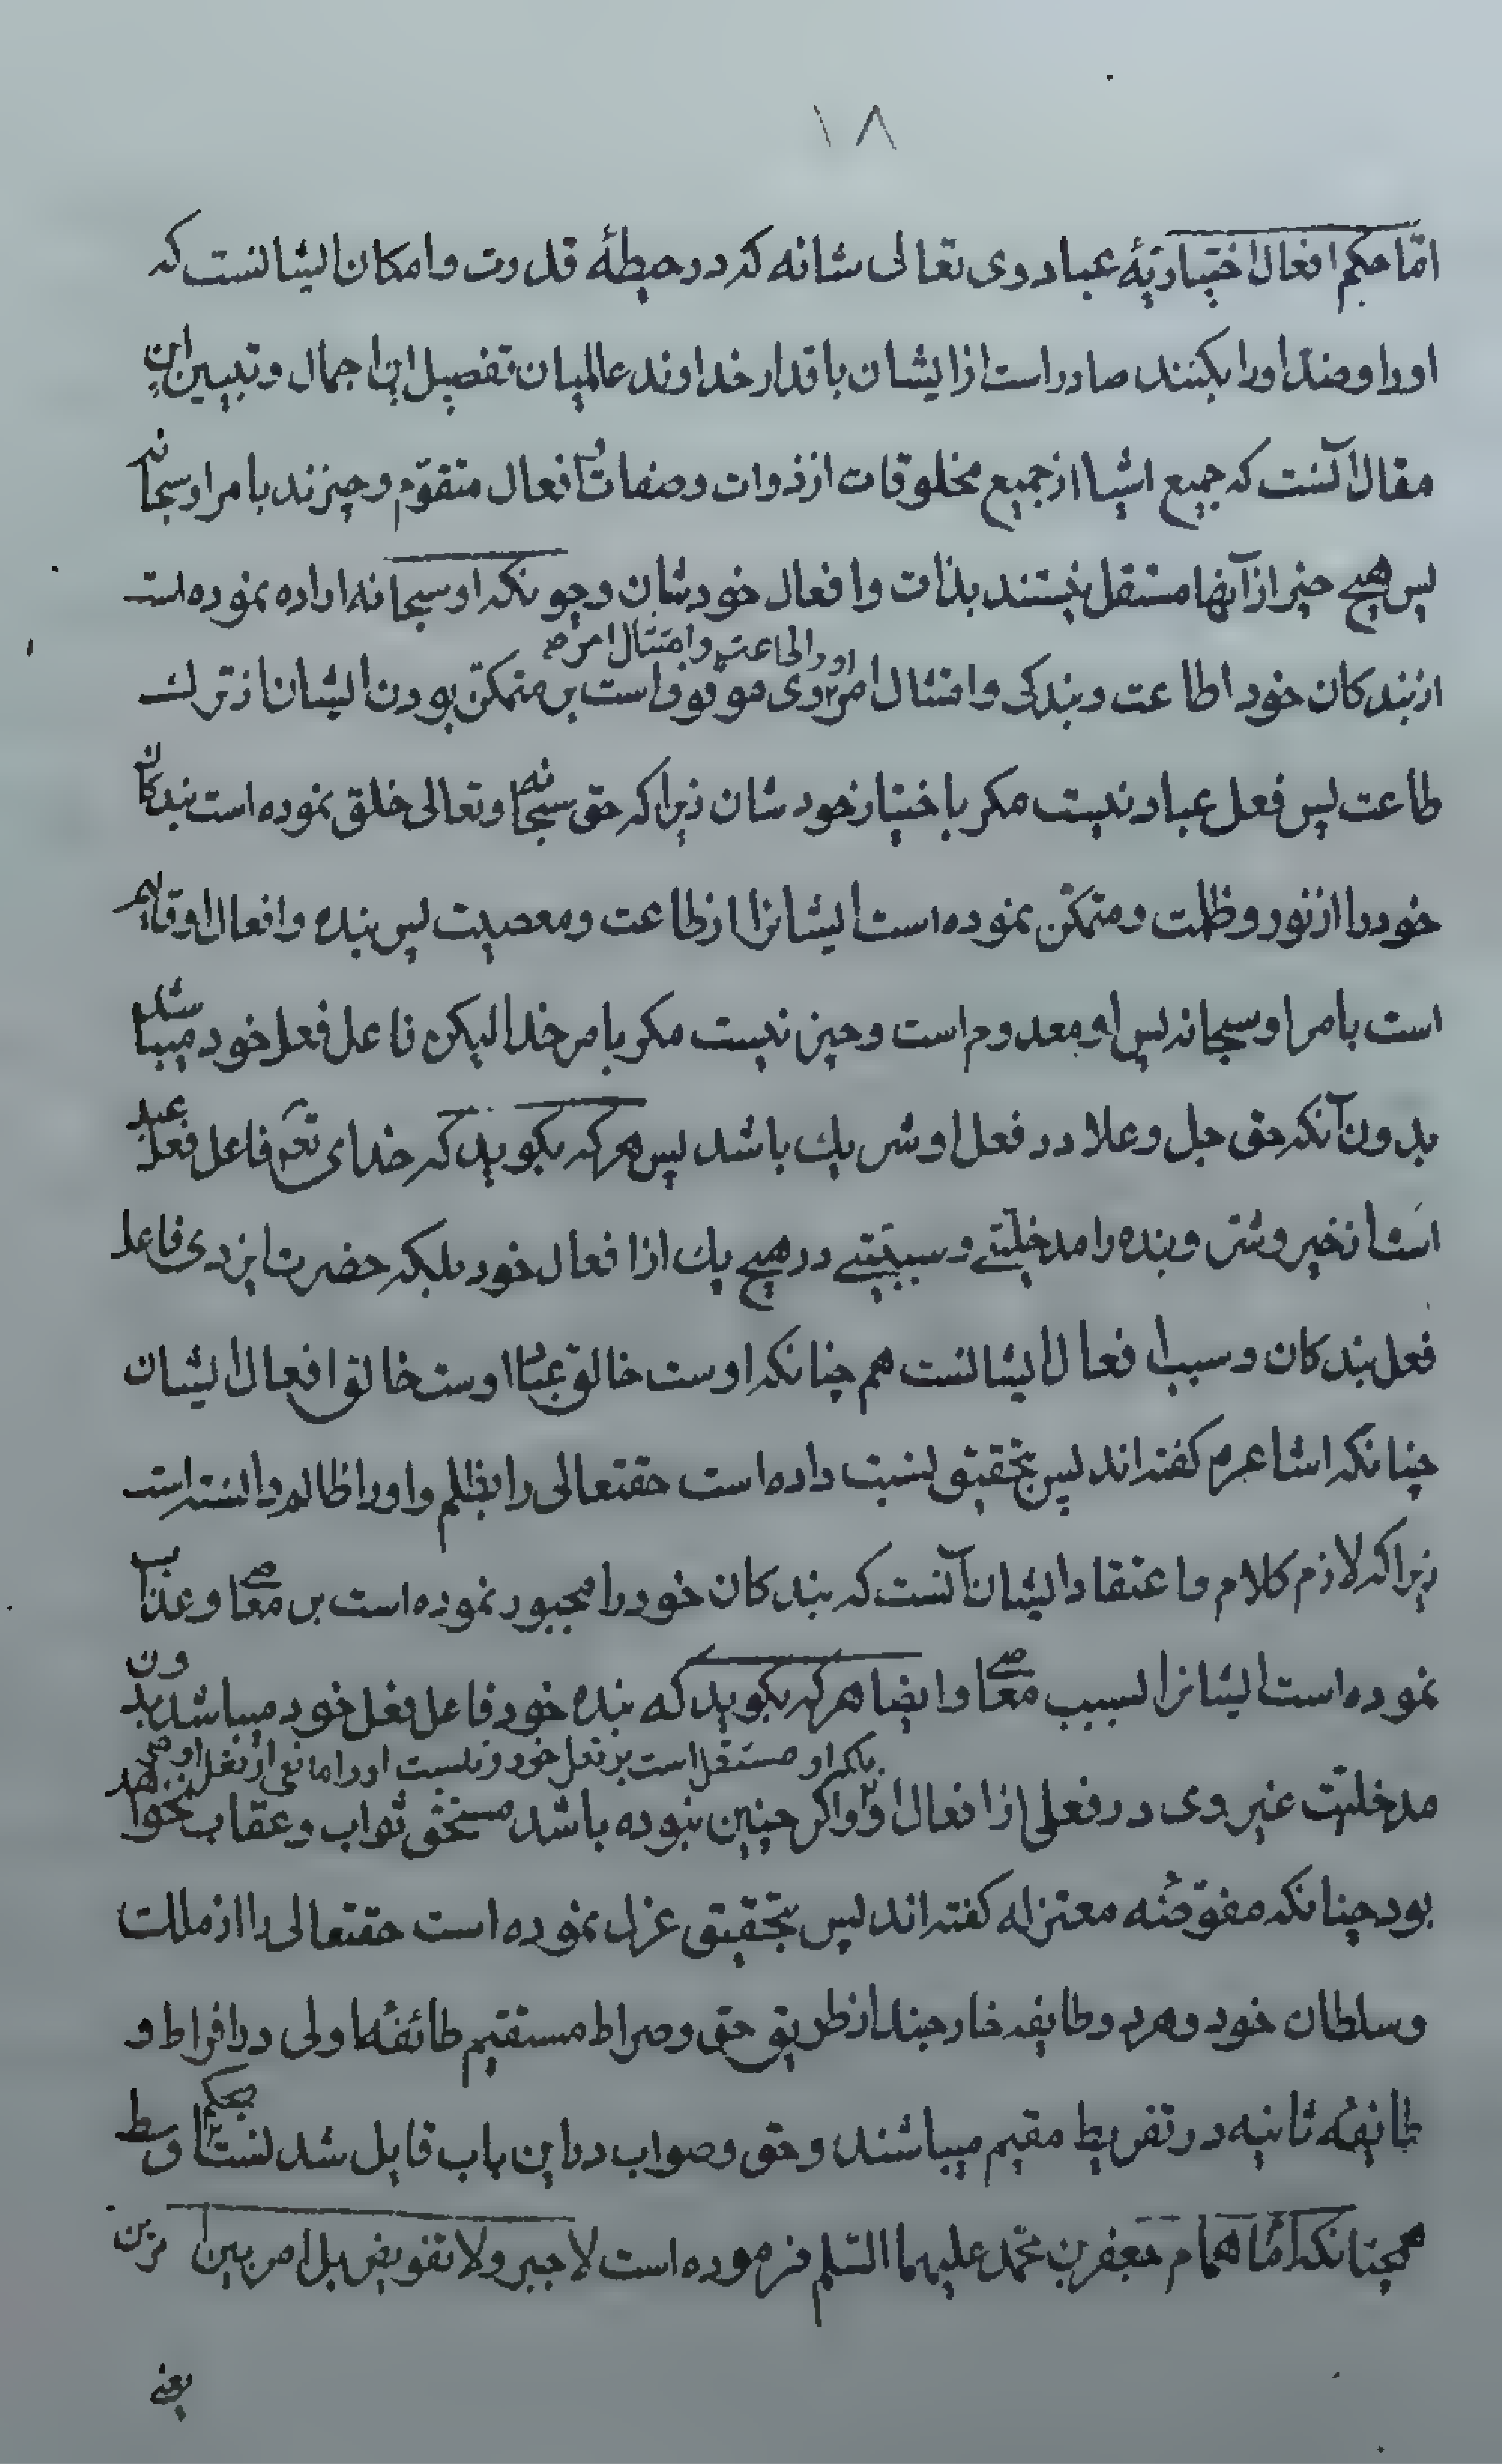 ١٨
امّا حکم افعال اختیاریّهٔ عباد وی تعالی شانه که در حیطهٔ قدرت و امکان ایشانست که
او را و ضدّ او را بکنند صادر است از ایشان باقدار خداوند عالمیان تفصیل این اجمال و تبیین این
مقال آنست که جمیع اشیا از جمیع مخلوقات از ذوات و صفات و افعال متقوّم و چیزند بامر او سبحانه
پس هیچ چیز از آنها مستقل نیستند بذات و افعال خودشان و چونکه او سبحانه اراده نموده است
او و اطاعت و امتثال امر صح
از بندکان خود اطاعت و بندکی و امتثال امر وی موقوف است بر متمکّن بودن ایشان از ترك
طاعت پس فعل عباد نیست مکر باختیار خودشان زیرا که حق سبحانه و تعالی خلق نموده است بندکان
خود را از نور و ظلمت و متمکّن نموده است ایشانرا از طاعت و معصیت پس بنده و افعال او قایم
است بامر او سبحانه پس او معدوم است و چیزی نیست مکر بامر خدا لیکن فاعل فعل خود میباشد
بدون آنکه حق جل و علا در فعل او شریك باشد پس هر که بکوید که خدای تعه فاعل فعل عبد
است از خیر و شرّ و بنده را مدخلیّتی و سببیّتی در هیچ یك از افعال خود بلکه حضرت ایزدی فاعل
فعل بندکان و سبب افعال ایشانست هم چنانکه اوست خالق عباد اوست خالق افعال ایشان
چنانکه اشاعره کفته اند پس بتحقیق نسبت داده است حقتعالی را بظلم و او را ظالم دانسته است
زیرا که لازم کلام و اعتقاد ایشان آنست که بندکان خود را مجبور نموده است بر معاصی و عذاب
نموده است ایشانرا بسبب معاصی و ایضا هر که بکوید که بنده خود فاعل فعل خود میباشد بدون
بلکه او مستقل است بر فعل خود و نیست او را مانعی از فعل او صح
مدخلیّت غیر وی در فعلی از افعال او و اکر چنین نبوده باشد مستحقّ ثواب و عقاب نخواهد
بود چنانکه مفوّضهٔ معتزله کفته اند پس بتحقیق عزل نموده است حقتعالی را از ملك
و سلطان خود و هر دو طایفه خارجند از طریق حق و صراط مستقیم طائفهٔ اولی در افراط و
طایفهٔ ثانیه در تفریط مقیم میباشند و حق و صواب در این باب قایل شدنست بحکم وسط
همچنانکه امام همام جعفر بن محمّد علیهما السّلم فرموده است لا جبر و لا تفویض بل امر بین امرین
یعنی